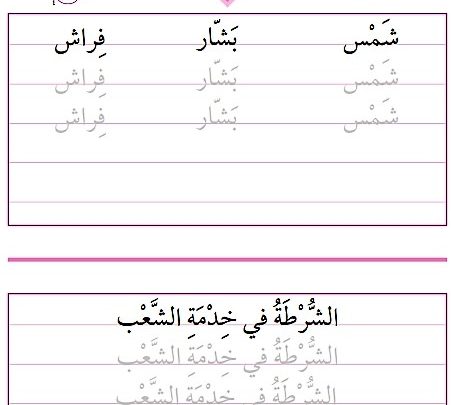 شَمْس بَشّار فِراش
شَمْس بَشّار فِراش
شَمْس بَشّار فِراش
الشُّرْطَةُ في خِدْمَةِ الشَّعْب
الشُّرْطَةُ في خِدْمَةِ الشَّعْب
الشُّرْطَةُ في خِدْمَةِ الشَّعْب